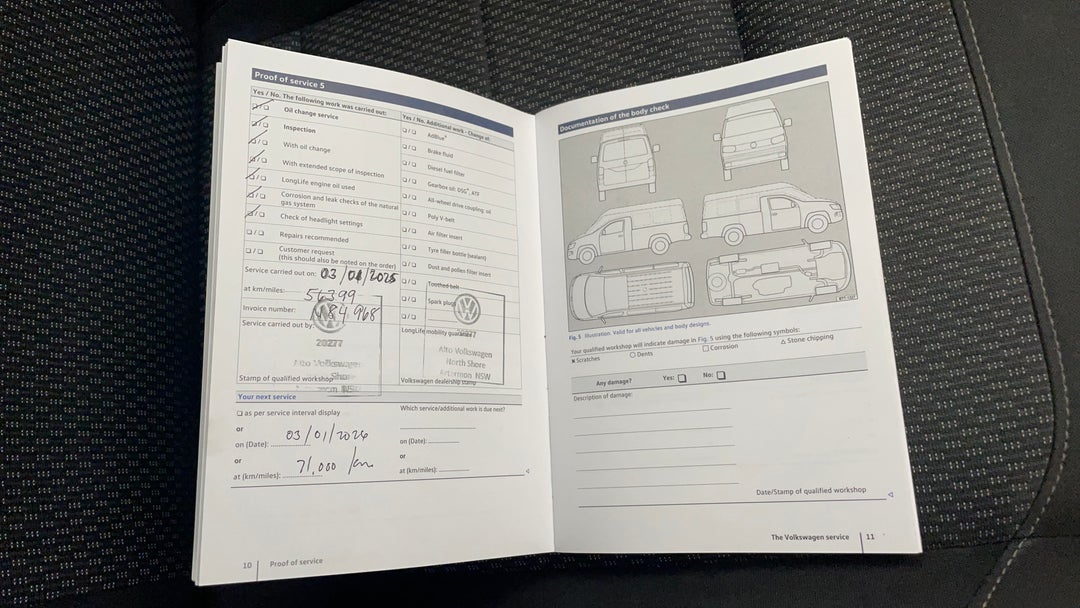 Proof of service 5
Yes / No. The following work was carried out:
☐/☐ Oil change service
☐/☐ Inspection
☐/☐ With oil change
☐/☐ With extended scope of inspection
☐/☐ LongLife engine oil used
☐/☐ Corrosion and leak checks of the natural
gas system
☐/☐ Check of headlight settings
☐/☐ Repairs recommended
☐/☐ Customer request
(this should also be noted on the order)
Service carried out on: 03/01/2025
at km/miles: 56399
Invoice number: 184968
Service carried out by:
20277
Alto Volkswagen
Shore
NSW
Stamp of qualified workshop
Yes / No. Additional work - Change of:
☐/☐ AdBlue®
☐/☐ Brake fluid
☐/☐ Diesel fuel filter
☐/☐ Gearbox oil: DSG®, ATF
☐/☐ All-wheel drive coupling: oil
☐/☐ Poly V-belt
☐/☐ Air filter insert
☐/☐ Tyre filler bottle (sealant)
☐/☐ Dust and pollen filter insert
☐/☐ Toothed belt
☐/☐ Spark plugs
LongLife mobility guarantee
20277
Alto Volkswagen
North Shore
Artarmon NSW
Volkswagen dealership stamp
Your next service
☐ as per service interval display
or
on (Date): 03/01/2026
or
at (km/miles): 71,000 km
Which service/additional work is due next?
on (Date):
or
at (km/miles):
10 Proof of service
Documentation of the body check
Fig. 5 Illustration. Valid for all vehicles and body designs.
Your qualified workshop will indicate damage in Fig. 5 using the following symbols:
✖ Scratches ○ Dents □ Corrosion △ Stone chipping
Any damage? Yes: ☐ No: ☐
Description of damage:
Date/Stamp of qualified workshop
The Volkswagen service 11